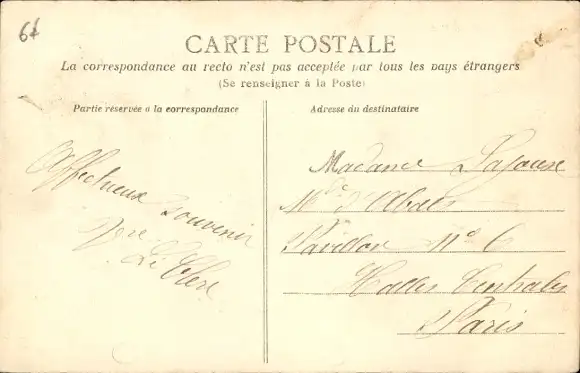 6f
CARTE POSTALE
La correspondance au recto n'est pas acceptée par tous les pays étrangers
(Se renseigner à la Poste)
Partie réservée à la correspondance
Adresse du destinataire
Affectueux souvenir
Le Clere
Madame Lajouse
Mde d'Abats
Pavillon N° 6
Halles Centrales
Paris